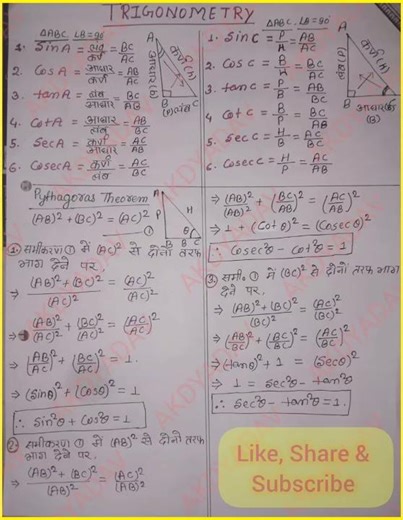 TRIGONOMETRY
ΔABC, ∠B=90°
1. SinA = लम्ब/कर्ण = BC/AC
2. CosA = आधार/कर्ण = AB/AC
3. tanA = लम्ब/आधार = BC/AB
4. CotA = आधार/लम्ब = AB/BC
5. SecA = कर्ण/आधार = AC/AB
6. CosecA = कर्ण/लम्ब = AC/BC
A
कर्ण (H)
आधार (B)
B (P) लंब C
ΔABC, ∠B=90°
1. Sin C = P/H = AB/AC
2. Cos C = B/H = BC/AC
3. tan C = P/B = AB/BC
4. Cot C = B/P = BC/AB
5. Sec C = H/B = AC/BC
6. Cosec C = H/P = AC/AB
A
लंब (P)
कर्ण (H)
B आधार
(B)
Pythagoras Theorem
(AB)² + (BC)² = (AC)²
①
A
P H
B B θ C
1. समीकरण ① में (AC)² से दोनों तरफ
भाग देने पर,
⇒ (AB)² + (BC)²/(AC)² = (AC)²/(AC)²
⇒ (AB)²/(AC)² + (BC)²/(AC)² = (AC/AC)²
⇒ (AB/AC)² + (BC/AC)² = 1.
⇒ (Sinθ)² + (Cosθ)² = 1
∴ Sin²θ + Cos²θ = 1
2. समीकरण ① में (AB)² से दोनों तरफ
भाग देने पर,
(AB)² + (BC)²/(AB)² = (AC)²/(AB)²
⇒ (AB)²/(AB)² + (BC/AB)² = (AC/AB)²
⇒ 1 + (Cotθ)² = (Cosecθ)²
∴ Cosec²θ - Cot²θ = 1
3. समी० ① में (BC)² से दोनों तरफ भाग
देने पर,
⇒ (AB)² + (BC)²/(BC)² = (AC)²/(BC)²
⇒ (AB/BC)² + (BC)²/(BC)² = (AC/BC)²
⇒ (tanθ)² + 1 = (Secθ)²
⇒ 1 = Sec²θ - tan²θ
∴ Sec²θ - tan²θ = 1.
Like, Share &
Subscribe